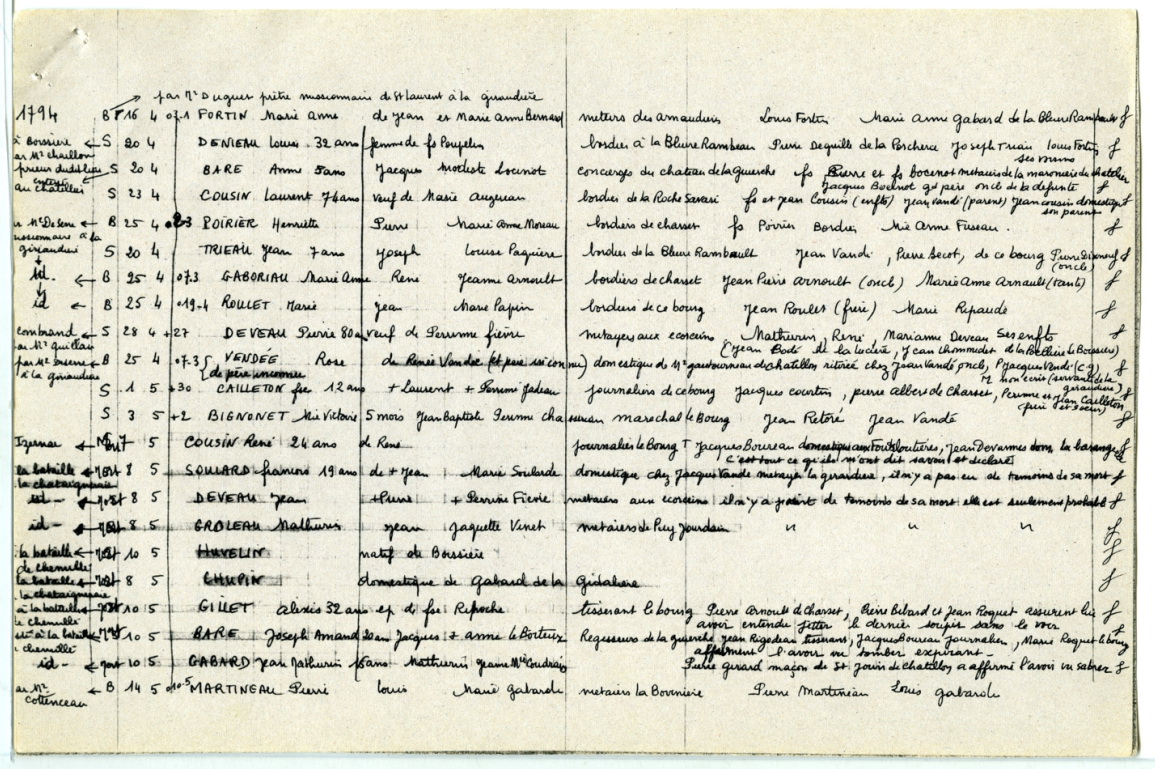 par Mr Duguet prêtre missionnaire de St Laurent à la giraudière
1794 B 16 4 FORTIN Marie Anne de Jean et Marie Anne Bernard metiers des amaudries Louis Fortin Marie Anne Gabard de la Bluire Rambaude f
à Boissière S 20 4 DENIEAU Louis 32 ans femme de fs Poupelin bordier à la Bluire Rambeau Pierre Dequille de la Porcherie Joseph Louis Fortin f
ar Mr chaillou
prieur dudit lieu S 20 4 BARE Anne 5 ans Jacques Modeste bocenot concierges du chateau de la Guierche fs Pierre et fs bocenot metaier de
au chatelier Jacques Bocenot gd père oncl de la defunte f
S 23 4 COUSIN Laurent 76 ans veuf de Marie bordier de la Roche Savari fs et Jean Cousin (enfts) Jean Vandé (parent) Jean cousin domestique f
son parent
B 25 4 POIRIER Henriette Pierre Marie Anne Moreau bordiers de charset fs Poirier Bordier Mie Anne Fuseau. f
missionnaire à la
giraudiere S 20 4 TRIEAU Jean 7 ans Joseph Louise Paquiere bordier de la Bluire Rambault Jean Vandé, Pierre Secot, de ce bourg Pierre f
(oncl)
id - B 25 4 07.3 GABORIAU Marie Anne René Jeanne Arnoult bordiers de charset Jean Pierre Arnoult (oncl) Marie Anne Arnault (tante) f
id B 25 4 19-4 ROULET Marie Jean Marie Papin bordier de ce bourg Jean Roulet (frère) Marie Ripaude f
combrand S 28 4 +27 DEVEAU Pierre 80 a veuf de Perrinne fièvre metayer aux ecorcins Mathurin, René Marianne Deveau Ses enfts f
ar Mr quillau (Jean Bodi de la lucière, Jean Chommidet de la Boissiere)
par Mr B 25 4 07.3 VENDEE Rose de Renée Vandée (et père inconnu) domestique de Mr de chatillon retirée chez Jean Vandé oncl, f
à la giraudiere (de père inconnu
S 1 5 +30 CAILLETON fse 12 ans + Laurent + Perrine Jadeau journaliers de ce bourg Jacques courtin, pierre albert de Charset, Perrinne et Jean Cailleton f
frère et soeur)
S 3 5 +2 BIGNONET Mie Victoire 5 mois Jean Baptiste Perinne chasseriau marechal le Bourg Jean Retoré Jean Vandé f
Izernai 7 5 COUSIN René 24 ans de René journalier le Bourg Jacques Boureau domestique aux Jean Devannes f
c'est tout ce qu'ils m'ont dit savoir et declaré
la bataille mort 8 5 SOULARD francois 19 ans de + Jean Marie Soularde domestique chez Jacques Vandé metayer la giraudiere, il n'y a pas eu de temoins de sa mort f
la chataigneraie
id - mort 8 5 DEVEAU Jean + Pierre + Perrine Fievre metaiers aux ecorcins il n'y a point de temoins de sa mort elle est seulement probable f
id - mort 8 5 GROLEAU Mathurin Jean Jaquette Vinet metaiers de Puy Jourdain " " " f
la bataille mort 10 5 HUVELIN natif de Boissière f
de chemillé
la bataille mort 8 5 CHUPIN domestique de Gabard de la Gidaliere f
la chataigneraie
à la bataille mort 10 5 GILLET Alexis 32 ans ep de fse Ripoche tisserant le bourg Pierre Arnoult de charset, Pierre Bibard et Jean Roquet assurent lui f
de chemillé avoir entendu jetter le dernier soupir sans le voir
à la bataille mort 10 5 BARE Joseph Amand 20 ans Jacques + anne le Borteux Regisseurs de la guierche Jean Rigodeau tisserant, Jacques Boureau journalier, Marie Roquet le bourg f
chemillé affirment l'avoir vu tomber expirant -
id - mort 10 5 GABARD Jean Mathurin 16 ans Mathurin Jeanne Mie Coudrais Pierre girard maçon de St Jouin de chatillon a affirmé l'avoir vu sabrer f
ar Mr B 14 5 MARTINEAU Pierre Louis Marie Gabarde metaiers la Bounière Pierre Martineau Louis Gabarde
cottenceau